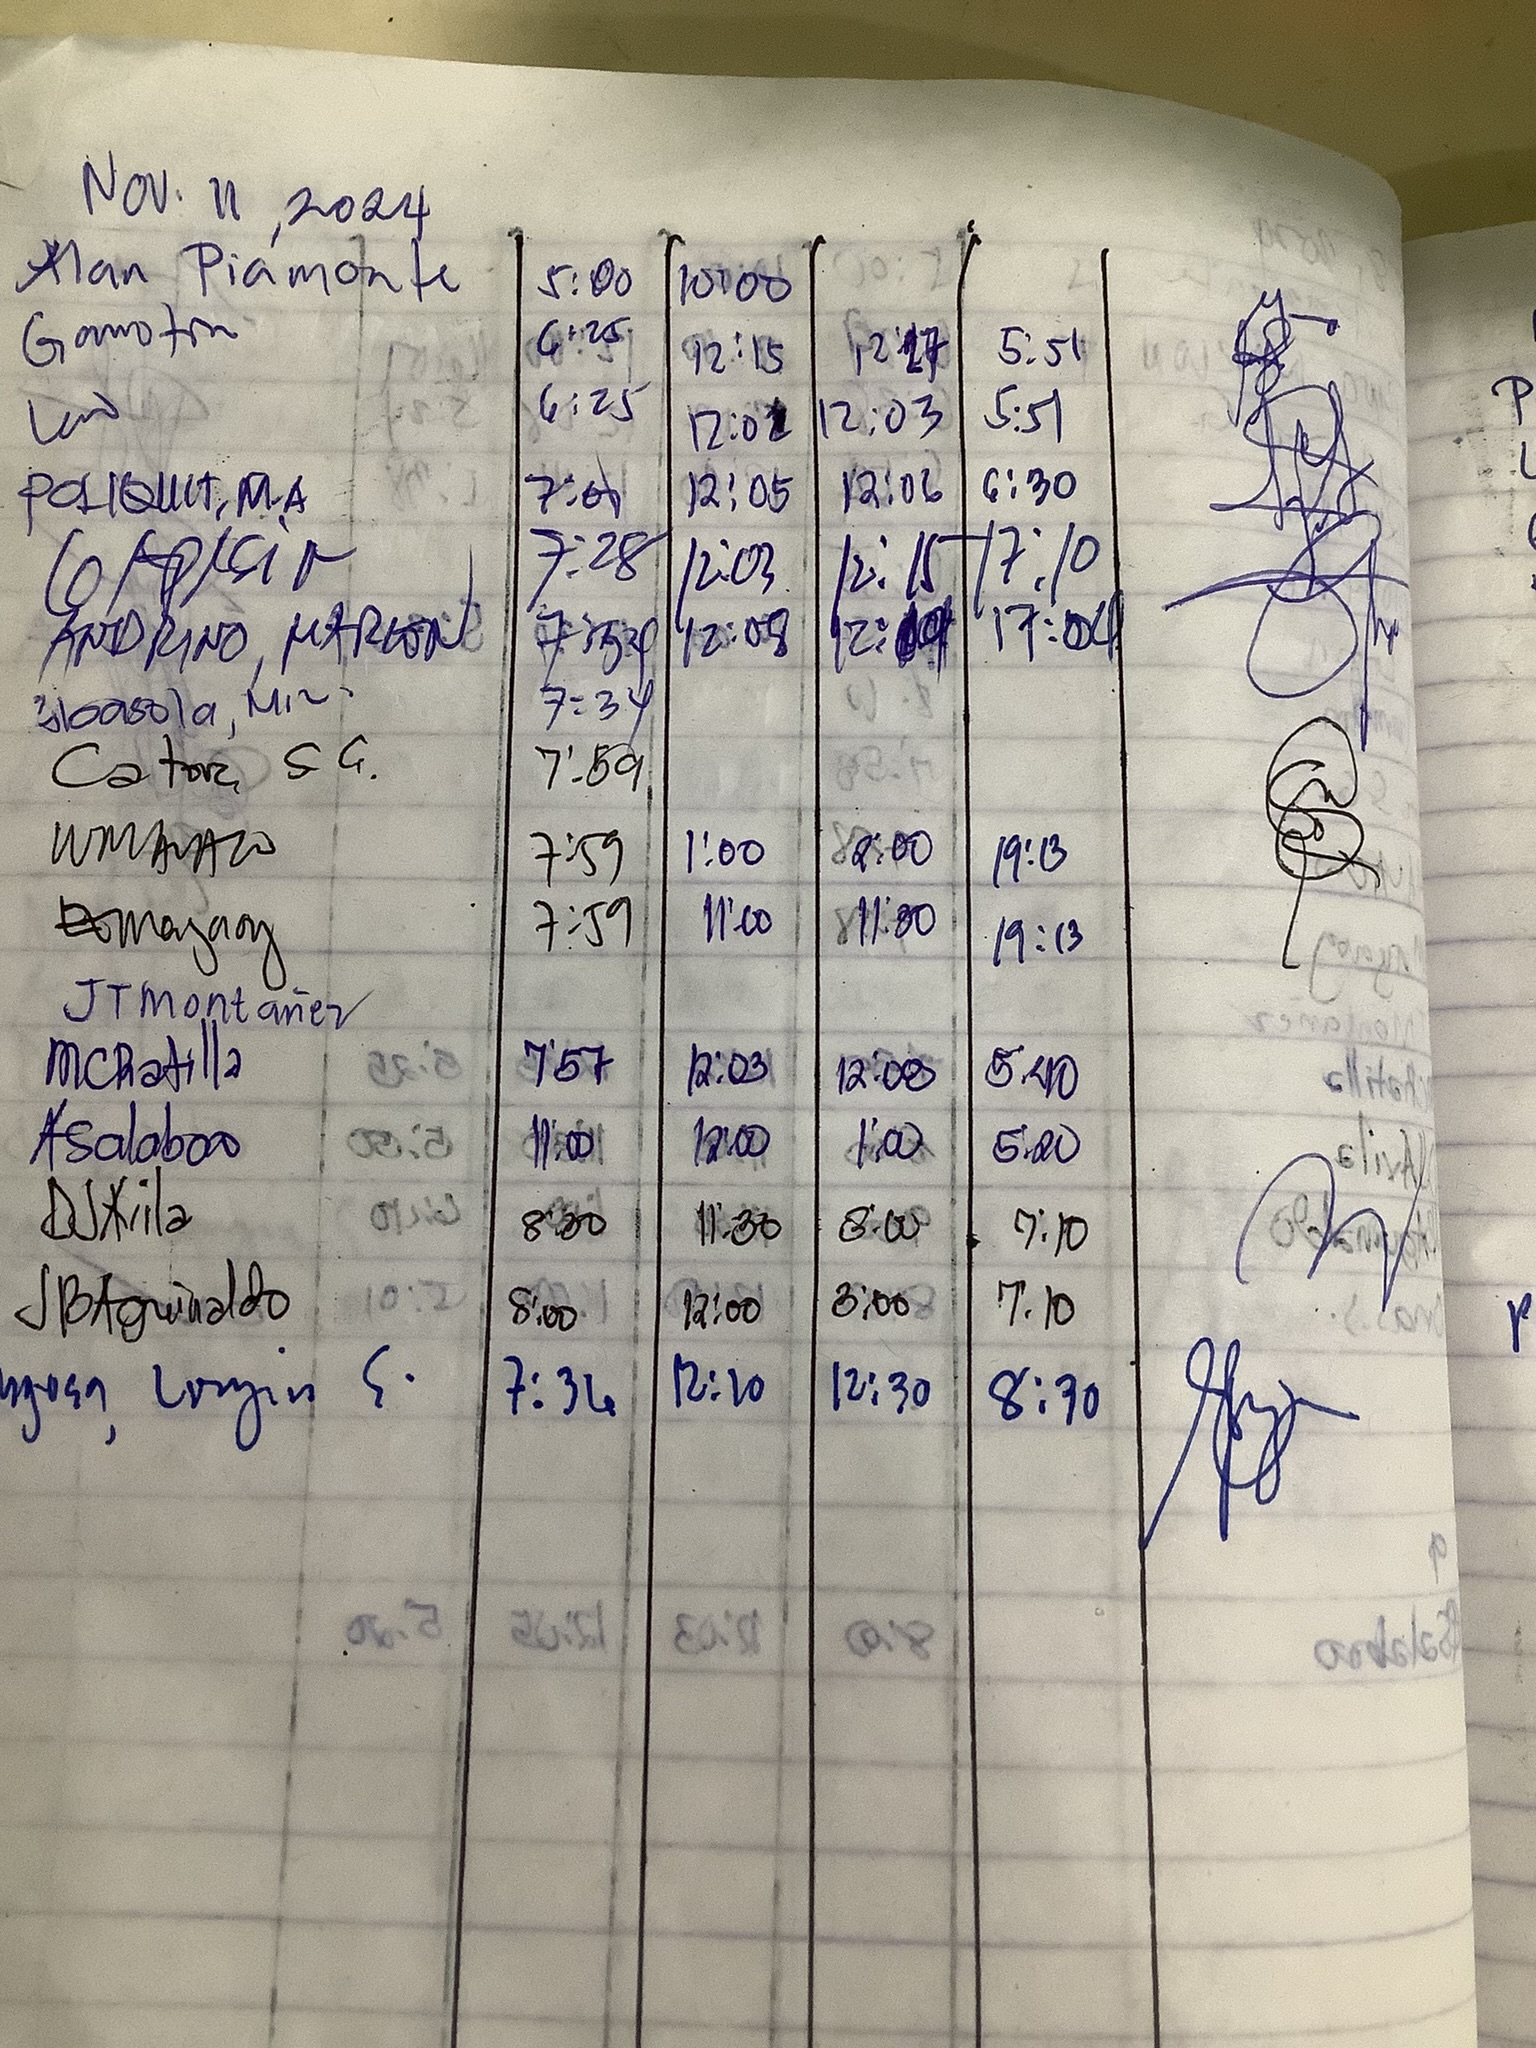 Nov. 11, 2024
Alan Piamonte 5:00 10:00
Gamotin 6:25 12:15 12:17 5:51
6:25 12:02 12:03 5:51
POLIQUIT, M.A 7:01 12:05 12:06 6:30
7:28 12:03 12:15 17:10
ANDRINO, MARLON 7:34 12:08 12:09 17:04
7:34
Catora, S G. 7:59
7:59 1:00 2:00 19:13
7:59 11:00 11:30 19:13
JTMontañez
MCRatilla 7:57 12:03 12:08 5:40
ASalaboo 11:00 12:00 1:00 5:20
DJAvila 8:30 11:30 3:00 7:10
JBAguinaldo 8:00 12:00 3:00 7:10
S. 7:36 12:10 12:30 8:30